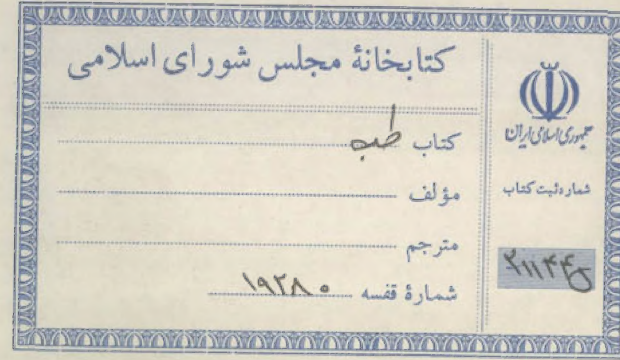 کتابخانهٔ مجلس شورای اسلامی
کتاب طب
مؤلف
مترجم
شمارهٔ قفسه ۱۹۲۸۰
جمهوری اسلامی ایران
شماره ثبت کتاب
۲۱۱۴۴